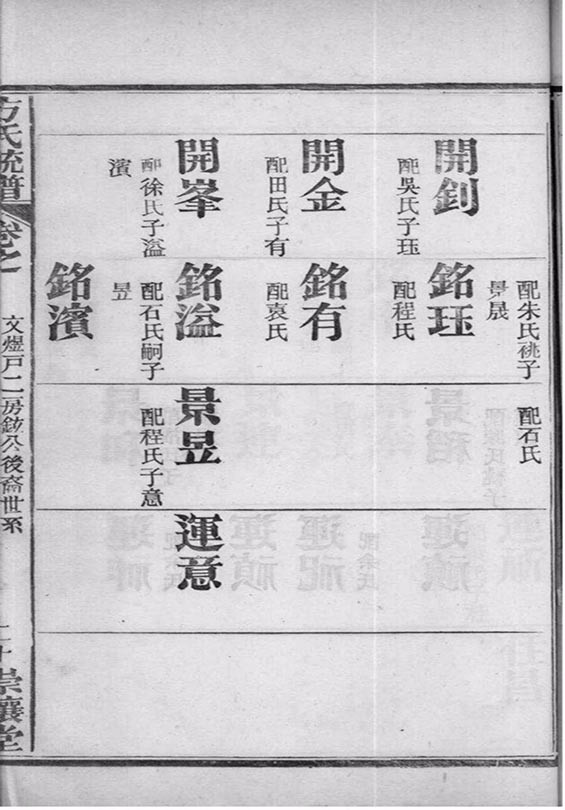 開釗
配吳氏子珏
開金
配田氏子有
開峯
配徐氏子溢
濱
配朱氏祧子
景晟
銘珏
配程氏
銘有
配袁氏
銘溢
配石氏嗣子
昱
銘濱
配石氏
景昱
配程氏子意
運意
方氏統譜
卷之
文煜戶二房鉉公後裔世系
崇讓堂